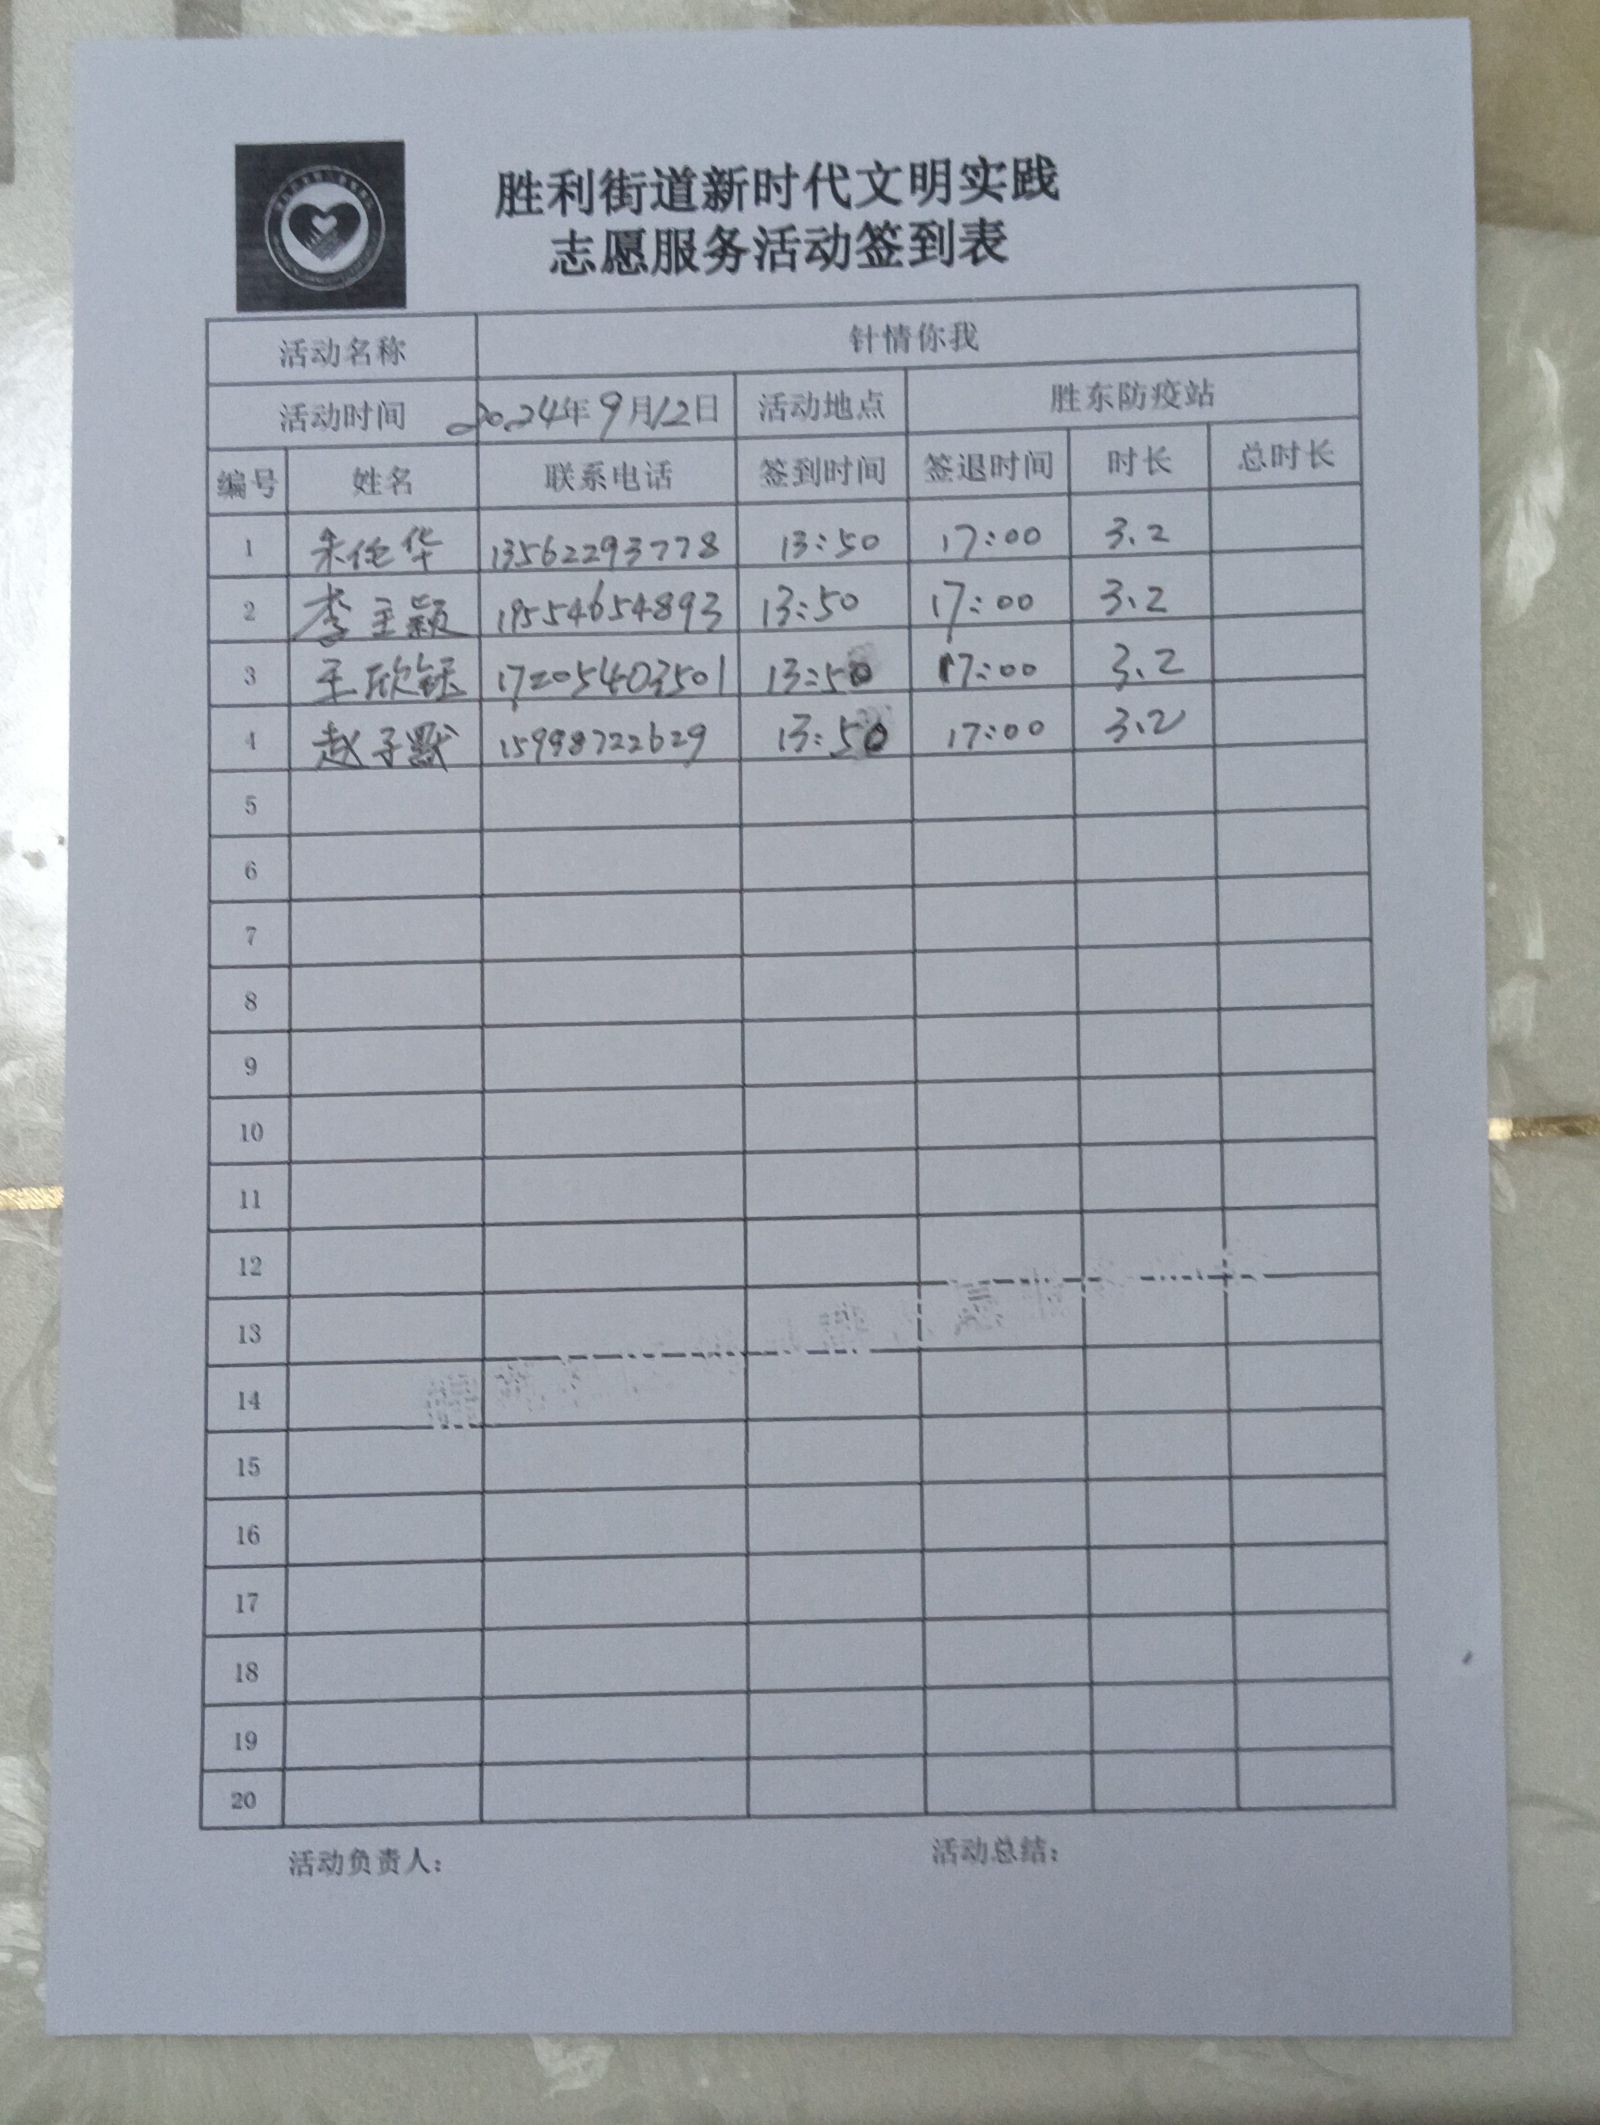 胜利街道新时代文明实践
志愿服务活动签到表
活动名称 针情你我
活动时间 2024年9月12日 活动地点 胜东防疫站
编号 姓名 联系电话 签到时间 签退时间 时长 总时长
1 华 13562293778 13:50 17:00 3.2
2 李主颖 19554654893 13:50 17:00 3.2
3 王欣钰 17205403501 13:50 17:00 3.2
4 赵子默 15998722629 13:50 17:00 3.2
5
6
7
8
9
10
11
12
13
14
15
16
17
18
19
20
活动负责人: 活动总结: